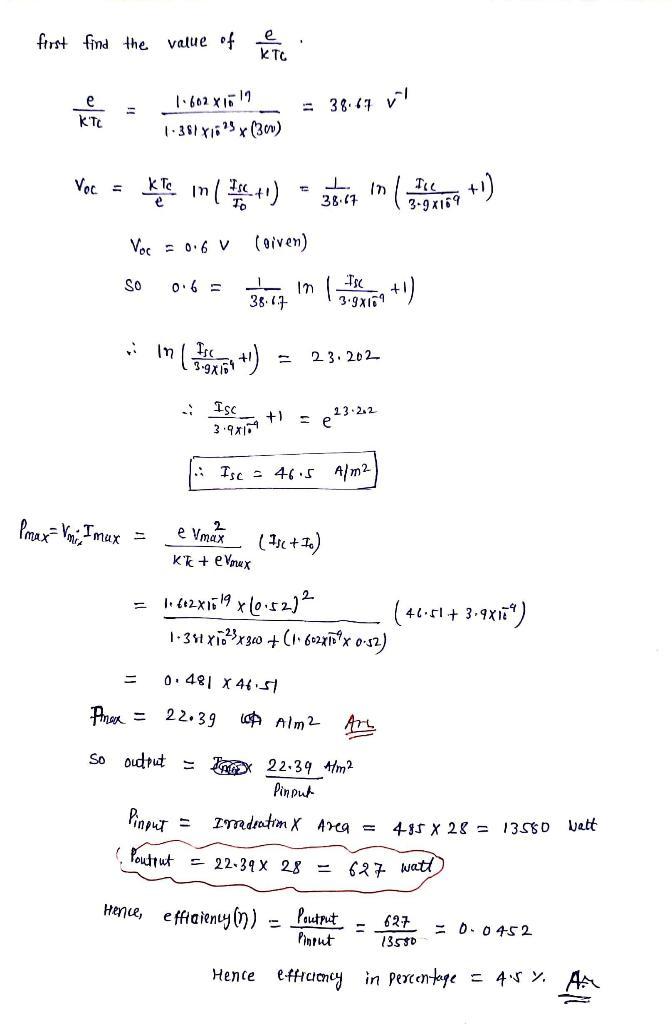 first find the value of e/KTc .
e/KTc = 1.602 x 10^-19 / 1.381 x 10^-23 x (300) = 38.67 V^-1
Voc = KTc/e ln ( Isc/Io +1 ) = 1/38.67 ln ( Isc/3.9x10^-9 +1 )
Voc = 0.6 V (Given)
SO 0.6 = 1/38.67 ln ( Isc/3.9x10^-9 +1 )
∴ ln ( Isc/3.9x10^-9 +1 ) = 23.202
∴ Isc/3.9x10^-9 +1 = e^23.202
∴ Isc = 46.5 A/m2
Pmax = Vmax Imax = e Vmax^2 / KTc + e Vmax (Isc + Io)
= 1.602x10^-19 x (0.52)^2 / 1.381 x10^-23 x300 + (1.602x10^-19 x 0.52) (46.51 + 3.9x10^-9)
= 0.481 x 46.51
Pmax = 22.39 A/m2 Ans
SO output = 22.39 A/m2 / Pinput
Pinput = Irradeation x Area = 485 x 28 = 13580 Watt
Poutput = 22.39 x 28 = 627 watt
Hence, effiaiency (η) = Poutput/Pinput = 627/13580 = 0.0452
Hence efficiency in percentage = 4.5 %. Ans